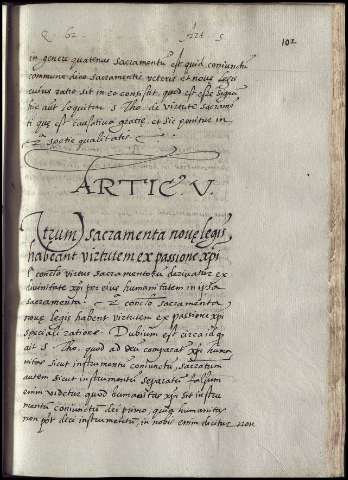 Q 62. Art. 5 102
in genere quatenus sacramentũ est quid coniunctũ
commune dico sacramentis veteris et novę legis
cuius ratio sit in eo consistit, quod est esse signũ
hic aũt loquitem S. Tho. de virtute sacramẽ
ti quę est causativa gratię, et sic ponitur in
2ª spetie qualitatis
ARTIC V.
Utrum sacramenta novę legis
habeant virtutem ex passione xpi
conclõ virtus sacramentorũ derivatur ex
divinitate xpi per eius humanitatem in ipsa
sacramenta. 2ª conclõ sacramenta
novę legis habent virtutem ex passione xpi
speciali ratione. Dubium est circa id q̃
ait S. Tho. quod ad deũ comparat xpi huma
nitas sicut instrumentũ coniunctũ, sacramtũ
autem sicut instrumentũ separatũ falsum
enim videtur quod humanitas xpi sit instru
mentũ coniunctũ dei primo, quia humanitas
non põt dici instrumentũ, in nobis enim dicitur non